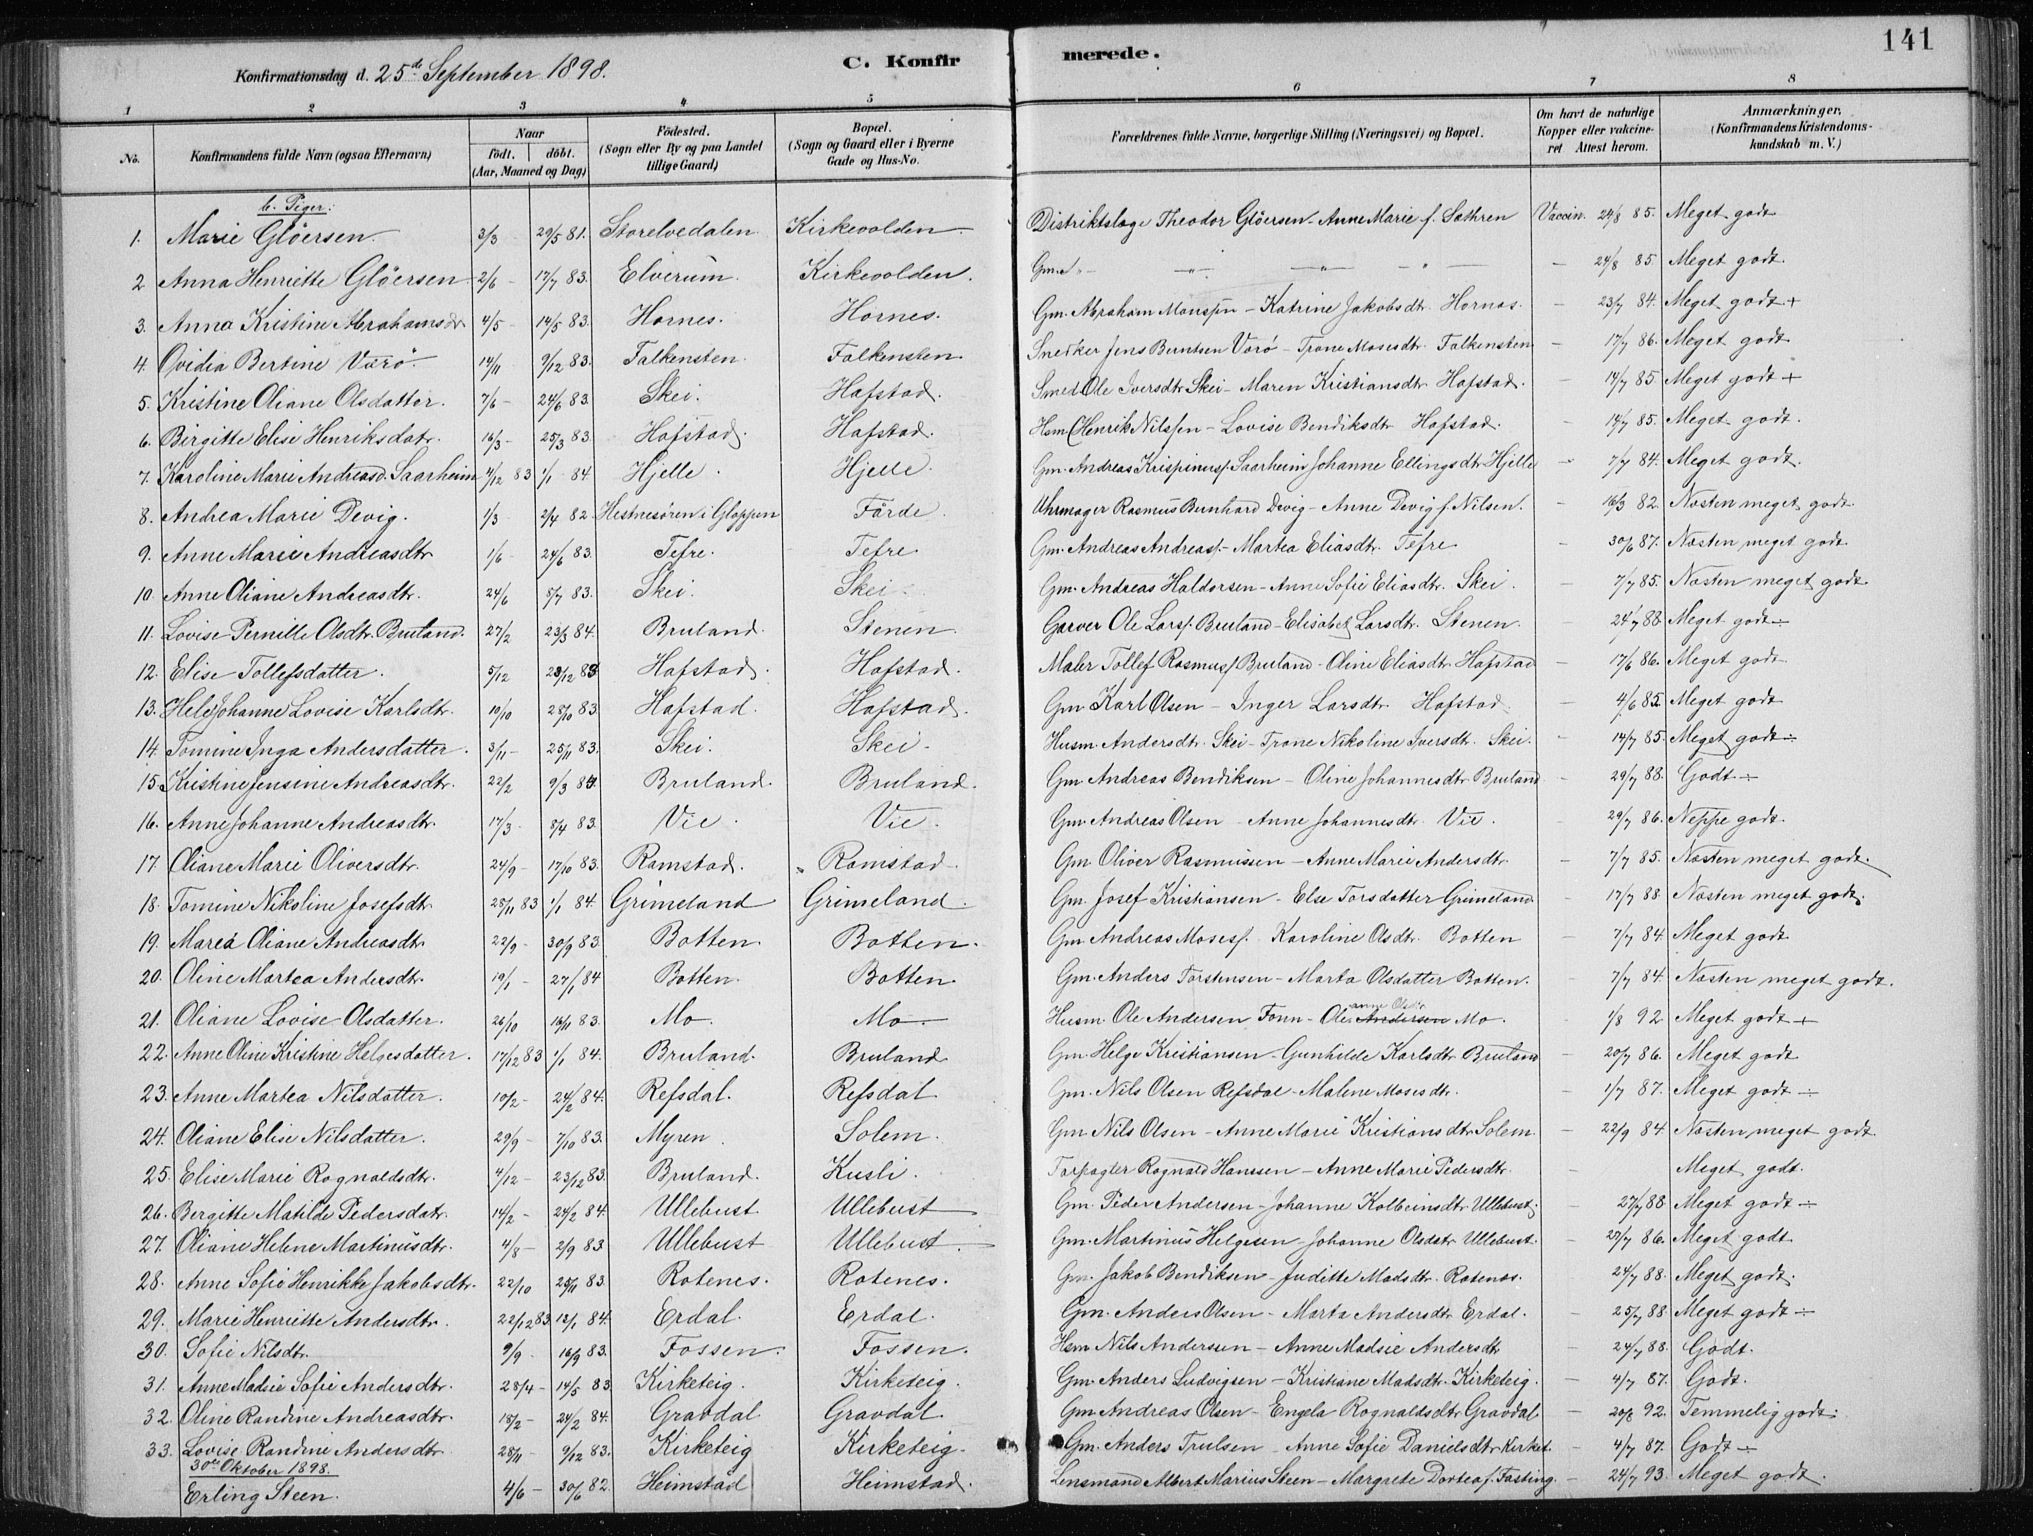 141
Konfirmationsdag d. 25de September 1898.
C. Konfirmerede.
1 2 3 4 5 6 7 8
No.
Konfirmandens fulde Navn (ogsaa Efternavn)
Naar
født. døbt.
(Aar, Maaned og Dag)
Fødested.
(Sogn eller By og paa Landet
tillige Gaard)
Bopæl.
(Sogn og Gaard eller i Byerne
Gade og Hus-No.
Forældrenes fulde Navne, borgerlige Stilling (Næringsvei) og Bopæl.
Om havt de naturlige
Kopper eller vakcine-
ret Attest herom.
Anmærkninger,
(Konfirmandens Kristendoms-
kundskab m. V.)
b. Piger:
1. Marie Gløersen. 3/3 29/5 81. Storelvedalen Kirkevolden Distriktslæge Theodor Gløersen - Anne Marie f. Sæthren Vaccin. 24/8 85. Meget godt
2 Anna Henriette Gløersen 2/6 - 17/7 83. Elverum. Kirkevolden. Gm. - 24/8 85. Meget godt.
3. Anna Kristine Abrahamsdr 4/5 - 14/5 83. Hornes. Hornes. Gm. Abraham Monssen - Katrine Jakobsdt. Hornes. - 23/7 84. Meget godt +
4. Ovidia Bertine Varø. 14/11 9/12 83. Falkensten. Falkensten Snedker Jens Berntsen Varø - Trone Mosesdt. Falkensten - 17/7 86. Meget godt
5. Kristine Oliane Olsdatter. 7/6 - 24/6 83. Skei. Hafstad. Smed Ole Iversdtr Skei - Maren Kristiansdtr. Hafstad. - 14/7 85 Meget godt +
6. Birgitte Elise Henriksdatr. 16/3 - 25/3 83. Hafstad. Hafstad. Hsm Henrik Nilssen - Lovise Bendiksdtr Hafstad. - 14/7 85. Meget godt.
7. Karoline Marie Andreasd. Saarheim 4/12 83 1/1 84. Hjelle. Hjelle. Gm. Andreas Krispinuss. Saarheim Johanne Ellingsdtr Hjelle - 7/7 84. Meget godt.
8. Andrea Marie Devig. 1/3 2/4 82. Hestnesøren i Gloppen Førde. Uhrmager Rasmus Bernhard Devig - Anne Devig f. Nilsen. - 16/3 82. Næsten meget godt
9. Anne Marie Andreasdtr 1/6 - 24/6 83. Tefre. Tefre Gm. Andreas Andreass. - Martea Eliasdtr. Tefre - 30/6 87. Næsten meget godt
10. Anne Oliane Andreasdtr. 24/6 8/7 83. Skei. Skei. Gm. Andreas Haldorsen - Anne Sofie Eliasdtr. Skei. - 7/7 85. Næsten meget godt
11. Lovise Pernille Olsdtr. Bruland. 27/2 23/3 84. Bruland. Stenen. Garver Ole Larss. Bruland - Elisabet Larsdtr. Stenen. - 24/7 88. Meget godt ÷
12. Elise Tollefsdatter. 5/12 23/12 83. Hafstad. Hafstad. Maler Tollef Rasmuss. Bruland - Oline Eliasdtr Hafstad - 17/6 86. Meget godt
13. Hele Johanne Lovise Karlsdtr. 10/10 28/10 83. Hafstad. Hafstad. Gm Karl Olsen - Inger Larsdtr Hafstad - 4/6 85. Meget godt
14. Tomine Inga Andersdatter. 3/11 - 25/11 83. Skei. Skei. Husm. Andersdtr. Skei - Trone Nikoline Iversdtr. Skei. - 14/7 85. Meget godt ÷
15. Kristine Jensine Andreasdtr. 22/2 9/3 84. Bruland. Bruland. Gm Andreas Bendiksen - Oline Johannesdtr Bruland - 29/7 88. Godt ÷
16. Anne Johanne Andreasdtr. 17/3 - 8/4 83. Vie. Vie. Gm. Andreas Olsen - Anne Johannesdtr. Vie. - 29/7 86. Neppe godt.
17 Oliane Marie Oliversdtr. 24/9 - 17/10 83. Ramstad. Ramstad. Gm Oliver Rasmussen - Anne Marie Andersdtr - 7/7 85. Næsten meget godt.
18. Tomine Nikoline Josefsdtr. 28/11 83 1/1 84. Grimeland Grimeland. Gm. Josef Kristiansen - Else Torsdatter Grimeland - 17/7 88. Næsten meget godt.
19. Marea Oliane Andreasdtr 22/9 - 30/9 83. Botten. Botten. Gm Andreas Moses. Karoline Olsdtr. Botten - 7/7 84 Meget godt
20. Oline Martea Andersdtr. 19/1 - 27/1 84 Botten. Botten. Gm. Anders Torstensen - Marta Olsdatter Botten. - 7/7 84. Næsten meget godt.
21. Oliane Lovise Olsdatter. 26/10 16/11 83. Mo. Mo. Husm Ole Andersen Fonn - Ole Andersen Mo. - 1/8 92 Meget godt +
22. Anne Oline Kristine Helgesdatter. 17/12 83 1/1 84. Bruland. Bruland Gm. Helge Kristiansen - Gunhilde Karlsdtr Bruland - 20/7 86. Meget godt
23. Anne Martea Nilsdatter. 10/2 - 24/2 84. Refsdal. Refsdal. Gm. Nils Olsen Refsdal - Malene Mosesdtr. - 1/7 87. Meget godt ÷
24. Oliane Elise Nilsdatter. 29/9 - 7/10 83. Myren. Solem. Gm Nils Olsen - Anne Marie Kristiansdtr Solem. - 22/9 84. Næsten meget godt
25. Elise Marie Rognaldsdtr. 4/12 - 23/12 83. Bruland. Kusli. Forpagter Rognald Hanssen - Anne Marie Pedersdtr. - Meget godt.
26. Bergitte Matilde Pedersdatr. 14/2 - 24/2 84. Ullebust Ullebust Gm. Peder Andersen - Johanne Kolbeinsdtr Ullebust. 27/7 88. Meget godt ÷
27. Oliane Helene Martinusdtr. 4/8 - 2/9 83 Ullebust Ullebust. Gm. Martinus Helgesen - Johanne Olsdatr Ullebust. 27/7 86. Meget godt
28. Anne Sofie Henrikke Jakobsdtr. 22/10 25/11 83. Rotenes. Rotenes. Gm. Jakob Bendiksen - Juditte Madsdtr. Rotenes. 24/7 88. Meget godt.
29. Marie Henriette Andersdtr. 22/12 83 12/1 84. Erdal. Erdal. Gm. Anders Olsen - Marta Andersdtr Erdal. - 25/7 88 Meget godt ÷
30. Sofie Nilsdtr. 9/9 - 16/9 83. Fossen. Fossen. Hsm Nils Andersen - Anne Madsie Andersdtr - 24/7 88. Godt.
31. Anne Madsie Sofie Andersdtr. 28/4 - 14/5 83. Kirketeig. Kirketeig. Gm. Anders Ludvigsen - Kristiane Madsdtr. Kirketeig. - 4/7 87. Godt.
32. Oline Randine Andreasdtr. 18/2 - 24/2 84. Gravdal Gravdal. Gm Andreas Olsen - Engela Rognaldsdtr Gravdal - 20/8 92. Temmelig godt.
33. Lovise Randine Andersdtr 28/11 - 9/12 83. Kirketeig Kirketeig. Gm. Anders Trulsen - Anne Sofie Danielsdtr Kirket. - 4/7 87. Godt ÷
30te Oktober 1898.
Erling Steen. 4/6 - 30/6 82. Heimstad Heimstad. Lensmand Albert Marius Steen - Margrete Dortea f. Fasting. - 24/7 93. Meget godt.